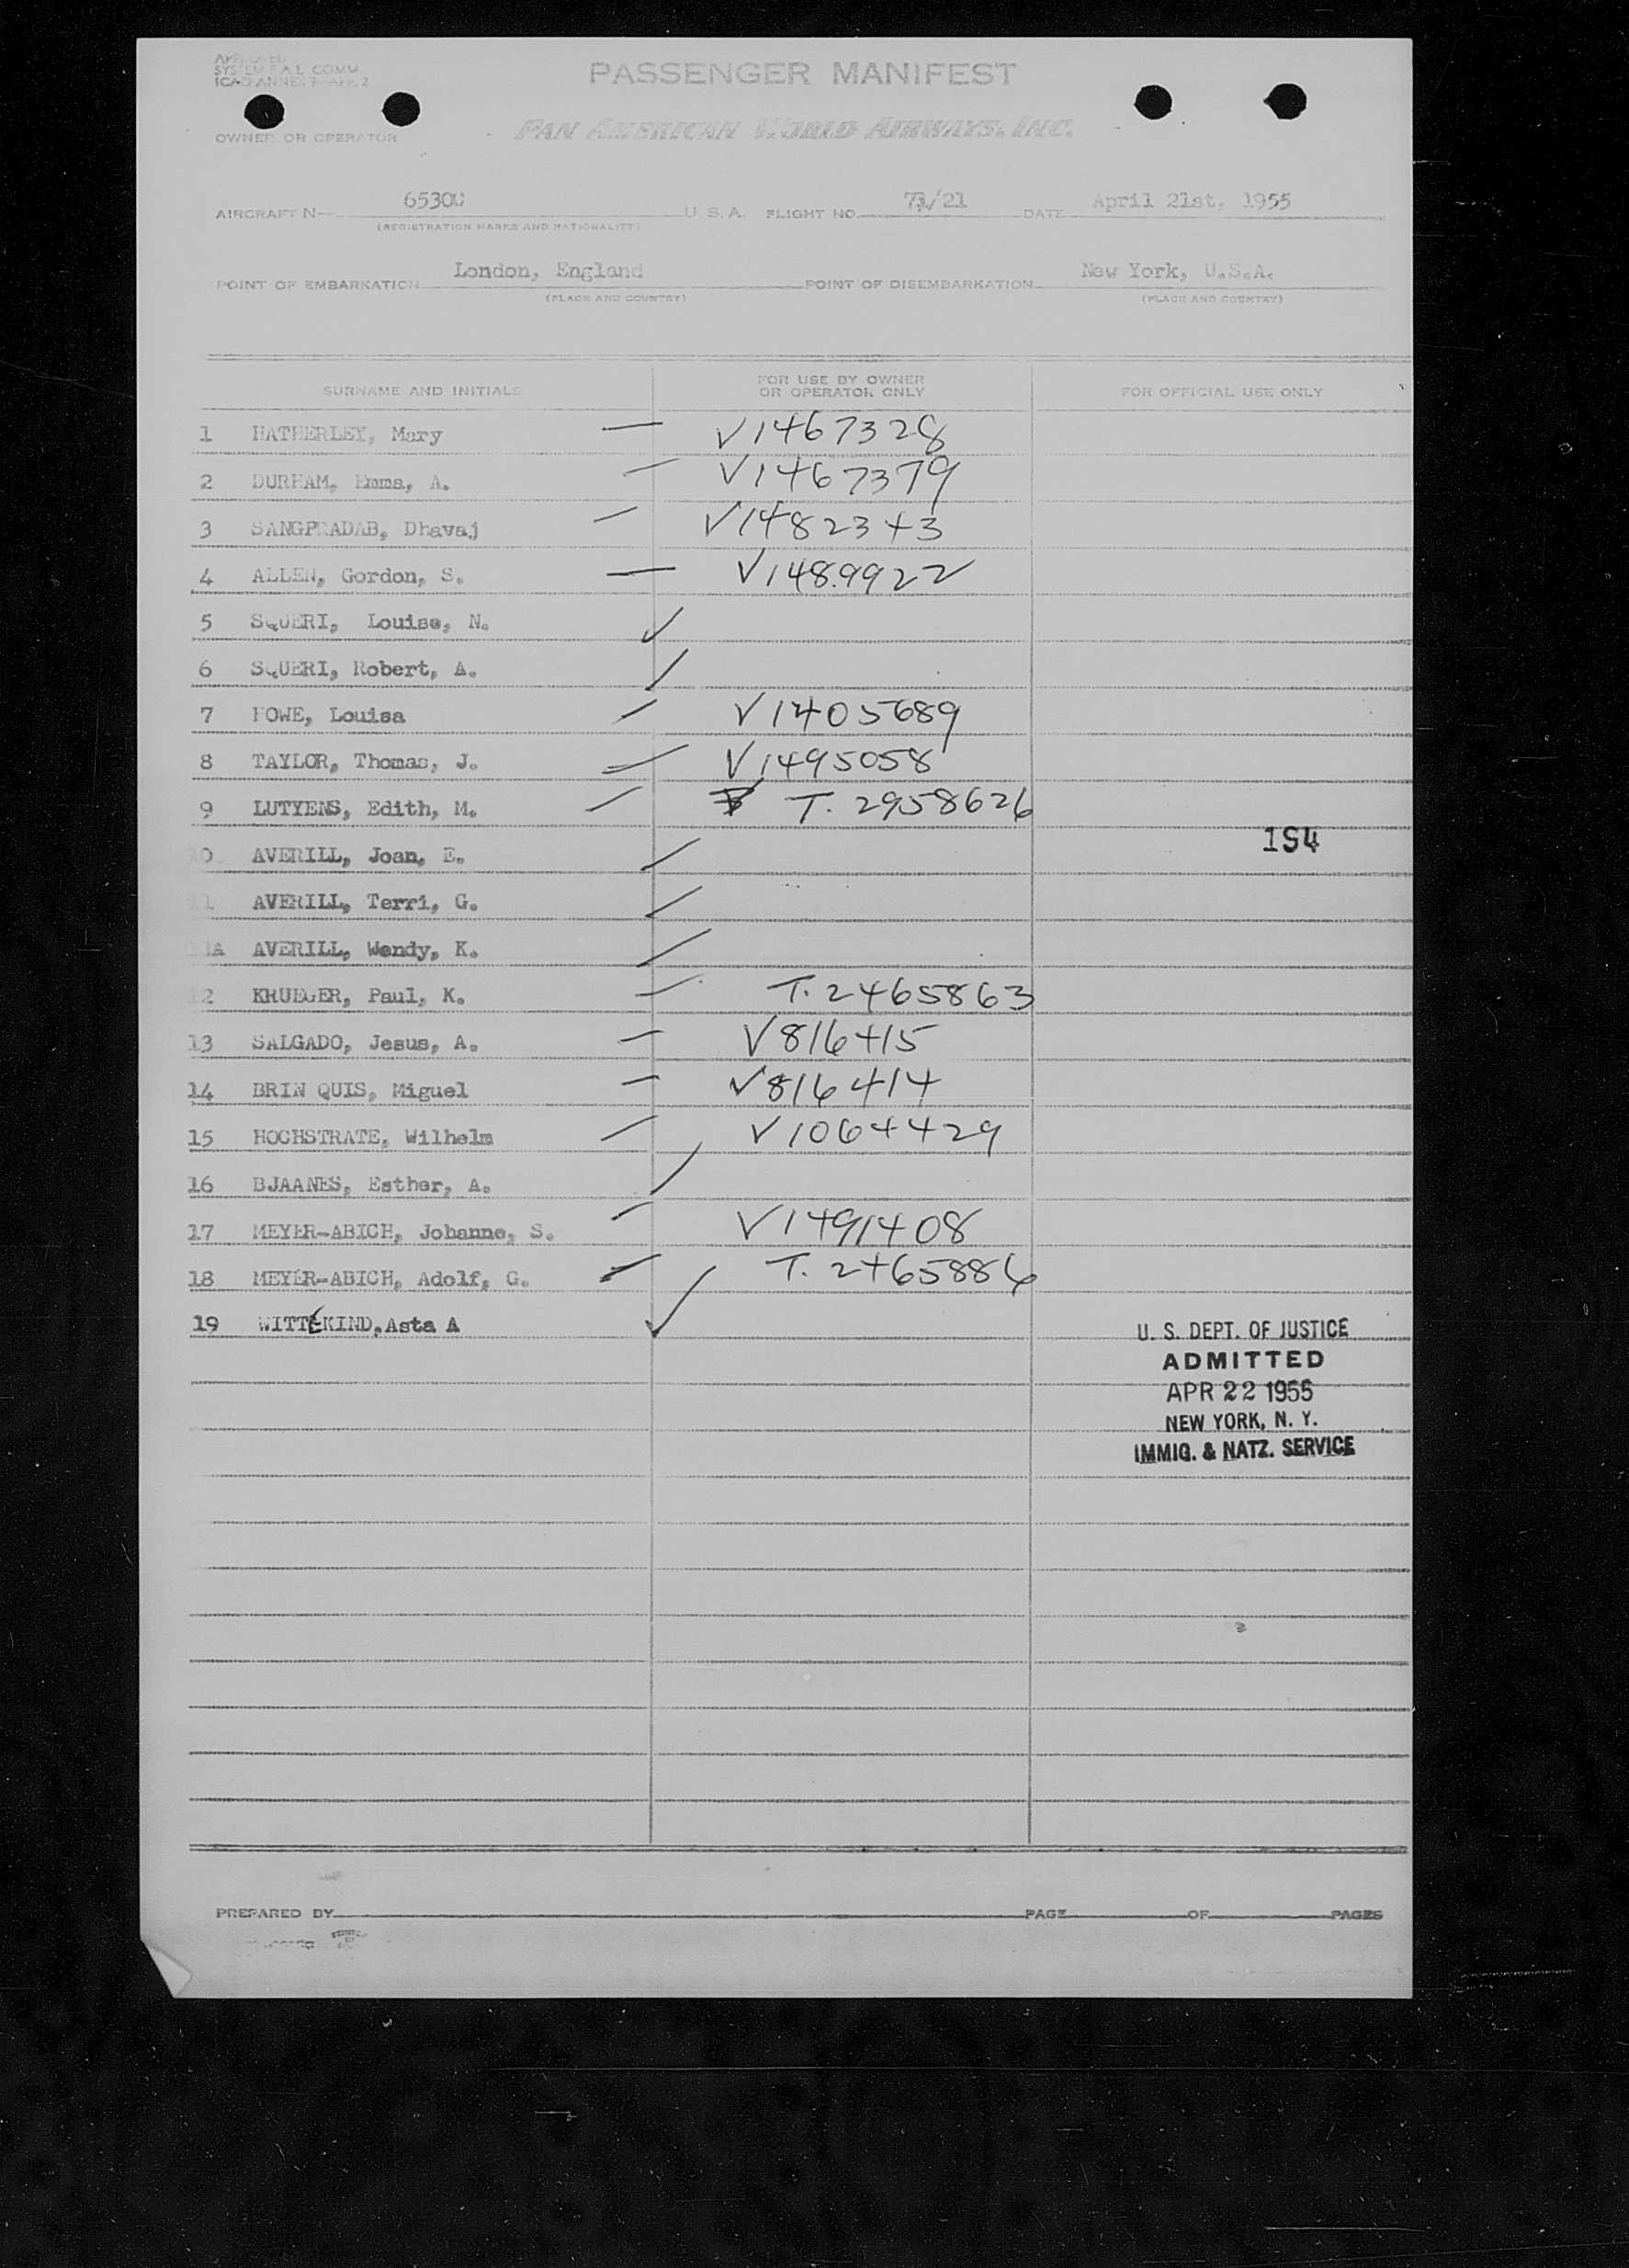 APPROVED
SYSTEM F.A.L. COMM.
ICAO ANNEX 9—APP. 2
PASSENGER MANIFEST
OWNER OR OPERATOR PAN AMERICAN WORLD AIRWAYS, INC.
AIRCRAFT N— 6530C U. S. A. FLIGHT NO. 71/21 DATE April 21st, 1955
(REGISTRATION MARKS AND NATIONALITY)
POINT OF EMBARKATION London, England POINT OF DISEMBARKATION New York, U.S.A.
(PLACE AND COUNTRY) (PLACE AND COUNTRY)
SURNAME AND INITIALS FOR USE BY OWNER OR OPERATOR ONLY FOR OFFICIAL USE ONLY
1 HATHERLEY, Mary — V1467328
2 DURHAM, Emma, A. — V1467379
3 SANGPRADAB, Dhavaj — V1482343
4 ALLEN, Gordon, S. — V1489922
5 SQUERI, Louise, N. ✓
6 SQUERI, Robert, A. ✓
7 HOWE, Louisa — V1405689
8 TAYLOR, Thomas, J. — V1495058
9 LUTYENS, Edith, M. — T. 2958626
154
10 AVERILL, Joan, E. ✓
11 AVERILL, Terri, G. ✓
11A AVERILL, Wendy, K. ✓
12 KRUEGER, Paul, K. — T. 2465863
13 SALGADO, Jesus, A. — V816415
14 BRIN QUIS, Miguel — V816414
15 HOCHSTRATE, Wilhelm — V1064429
16 BJAANES, Esther, A. ✓
17 MEYER-ABICH, Johanne, S. — V1491408
18 MEYER-ABICH, Adolf, G. — T. 2465886
19 WITTEKIND, Asta A ✓
U. S. DEPT. OF JUSTICE
ADMITTED
APR 22 1955
NEW YORK, N. Y.
IMMIG. & NATZ. SERVICE
PREPARED BY PAGE OF PAGES